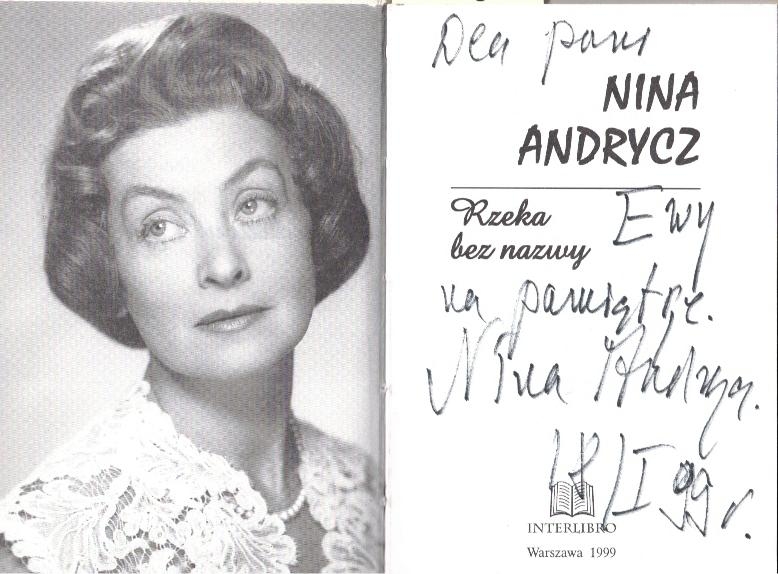 Dla pani
NINA
ANDRYCZ
Rzeka
bez nazwy
Ewy
na pamiątkę.
Nina Andrycz.
18/I 99 r.
INTERLIBRO
Warszawa 1999